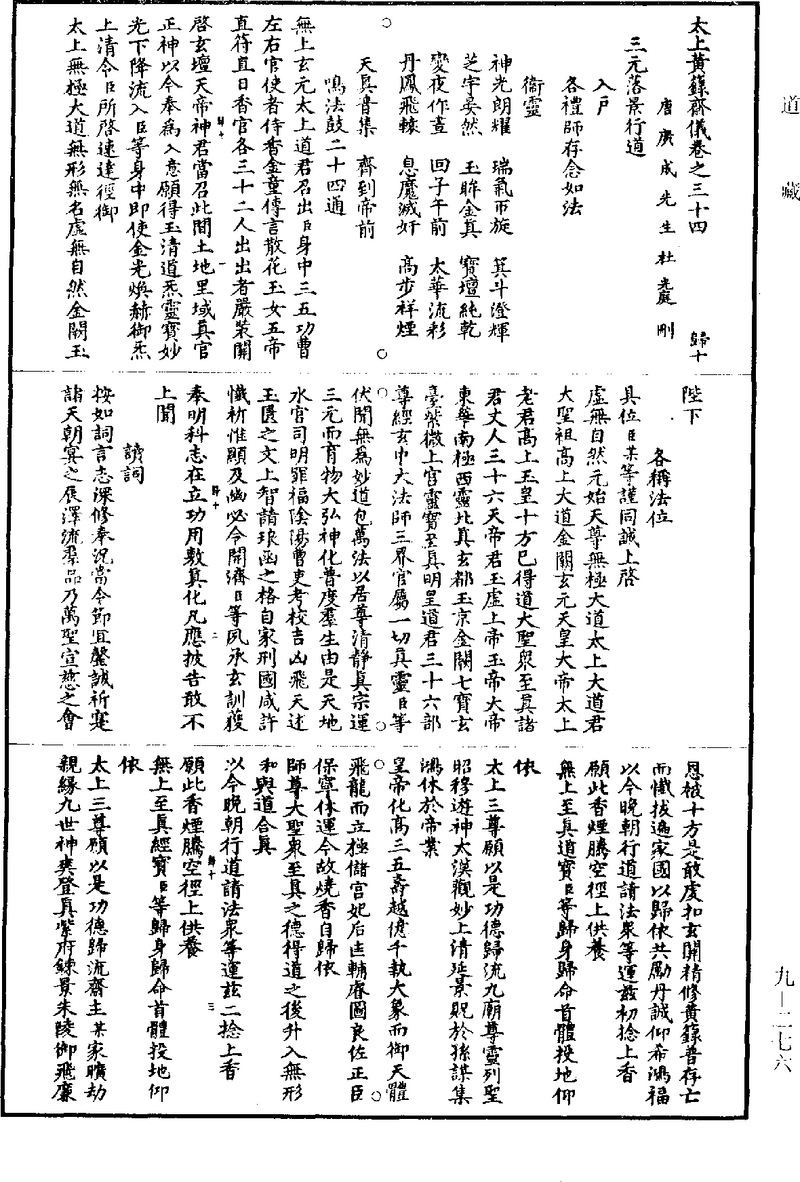 道藏
太上黃籙齋儀卷之三十四　歸十
唐廣成先生杜光庭刪
三元落景行道
入戶
各禮師存念如法
衞靈
神光朗耀　瑞氣帀旋　箕斗澄輝
芝宇奐然　玉眸金真　寶壇純乾
變夜作晝　回子午前　太華流彩
丹鳳飛轅　息魔滅奸　高步祥煙
天真普集　齊到帝前
鳴法鼓二十四通
無上玄元太上道君召出臣身中三五功曹
左右官使者侍香金童傳言散花玉女五帝
直符直日香官各三十二人出出者嚴裝關
啓玄壇天帝神君當召此間土地里域真官
正神以今奉爲入意願得玉清道炁靈寶妙
光下降流入臣等身中即使金光煥赫御炁
上清令臣所啓速達徑御
太上無極大道無形無名虛無自然金闕玉
陛下
各稱法位
具位臣某等謹同誠上啓
虛無自然元始天尊無極大道太上大道君
大聖祖高上大道金闕玄元天皇大帝太上
老君高上玉皇十方已得道大聖衆至真諸
君丈人三十六天帝君玉虛上帝玉帝大帝
東華南極西靈北真玄都玉京金闕七寶玄
臺紫微上宮靈寶至真明皇道君三十六部
尊經玄中大法師三界官屬一切真靈臣等
伏聞無爲妙道包萬法以居尊清靜真宗運
三元而育物大弘神化普度羣生由是天地
水官司明罪福陰陽曹吏考校吉凶飛天述
玉匱之文上智請琅函之格自家刑國咸許
懺祈惟顯及幽必令開濟臣等夙承玄訓獲
奉明科志在立功用敷真化凡應披告敢不
上聞
讀詞
按如詞言志深修奉況當令節宜罄誠祈寔
諸天朝宴之辰澤流羣品乃萬聖宣慈之會
恩被十方是敢虔扣玄關精修黃籙普存亡
而懺拔遍家國以歸依共勵丹誠仰希鴻福
以今晚朝行道請法衆等運玆初捻上香
願此香煙騰空徑上供養
無上至真道寶臣等歸身歸命首體投地仰
依
太上三尊願以是功德歸流九廟尊靈列聖
昭穆遊神太漠觀妙上清延景貺於孫謀集
鴻休於帝業
皇帝化高三五壽越億千執大象而御天體
飛龍而立極儲宮妃后叶輔睿圖良佐正臣
保寧休運今故燒香自歸依
師尊大聖衆至真之德得道之後升入無形
和與道合真
以今晚朝行道請法衆等運玆二捻上香
願此香煙騰空徑上供養
無上至真經寶臣等歸身歸命首體投地仰
依
太上三尊願以是功德歸流齋主某家曠劫
親緣九世神爽登真紫府鍊景朱陵御飛廉
九－二七六